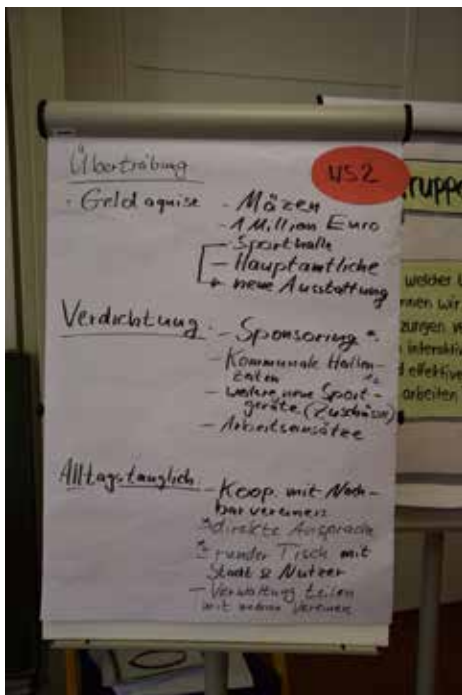 Übertreibung
WS2
· Geldaquise - Mäzen
- 1 Million Euro
- Sporthalle
- Hauptamtliche
+ neue Ausstattung
Verdichtung - Sponsoring
- Kommunale Hallen-
zeiten
- weitere neue Sport-
geräte (Zuschüsse)
- Arbeitseinsätze
Alltagstauglich - Koop. mit Nach-
barvereinen
direkte Ansprach
runder Tisch mit
Stadt & Nutzer
- Verwaltung teilen
mit anderen Vereinen
ruppe
welcher
nnen wir
zungen
interaktiv
effektive
arbeiten